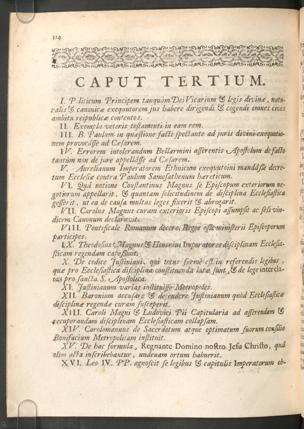 114
CAPUT TERTIUM.
I. Politicum Principem tanquam Dei Vicarium & legis divinæ, natu-
ralis & canonicæ exequutorem jus habere dirigendi & cogendi omnes cives
ambitu reipublicæ contentos.
II. Exempla veteris testamenti in eam rem.
III. B. Paulum in quæstione facti spectante ad juris divini exequutio-
nem provocâsse ad Cæsarem.
IV. Errorem intolerandum Bellarmini asserentis Apostolum de facto
tantùm non de jure appellâsse ad Cæsarem.
V. Aurelianum Imperatorem Ethnicum exequutioni mandâsse decre-
tum Ecclesiæ contra Paulum Samosatenum hæreticum.
VI. Quâ notione Constantinus Magnus se Episcopum exteriorum ne-
gotiorum appellarit, & quantam sollicitudinem de disciplina Ecclesiastica
gesserit, ut ea de causa multas leges fixerit & abrogarit.
VII. Carolus Magnus curam exterioris Episcopi assumpsit ac se vin-
dicem Canonum declaravit.
VIII. Pontificale Romanum docere Reges esse ministerii Episcoporum
participes.
IX. Theodosius Magnus & Honorius Imperatores disciplinam Ecclesia-
sticam regendam capessunt.
X. De codice Justiniani, qui totus fermè est in referendis legibus
quæ pro Ecclesiastica disciplina constituenda latæ sunt, & de lege inter cla-
ras pro sancta S. Apostolica.
XI. Justinianum varias instituisse Metropoles.
XII. Baronium accusare & defendere Justinianum quod Ecclesiasticæ
disciplinæ regendæ curam susceperat.
XIII. Caroli Magni & Ludovici Pii Capitularia ad asserendam &
recuperandam disciplinam Ecclesiasticam collapsam.
XIV. Carolomannus de Sacerdotum atque optimatum suorum consilio
Bonifacium Metropolitam instituit.
XV. De hac formula, Regnante Domino nostro Jesu Christo, quâ
olim acta inscribebantur, undenam ortum habuerit.
XVI. Leo IV. PP. agnoscit se legibus & capitulis Imperatorum ob-